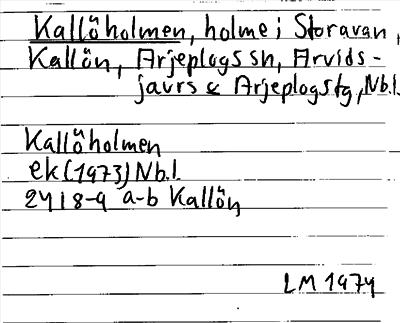 Kallöholmen, holme i Storavan,
Kallön, Arjeplogs sn, Arvids-
jaurs & Arjeplogs tg, Nb.l.
Kallöholmen
ek (1973) Nb.l.
24 I 8-9 a-b Kallön
LM 1974